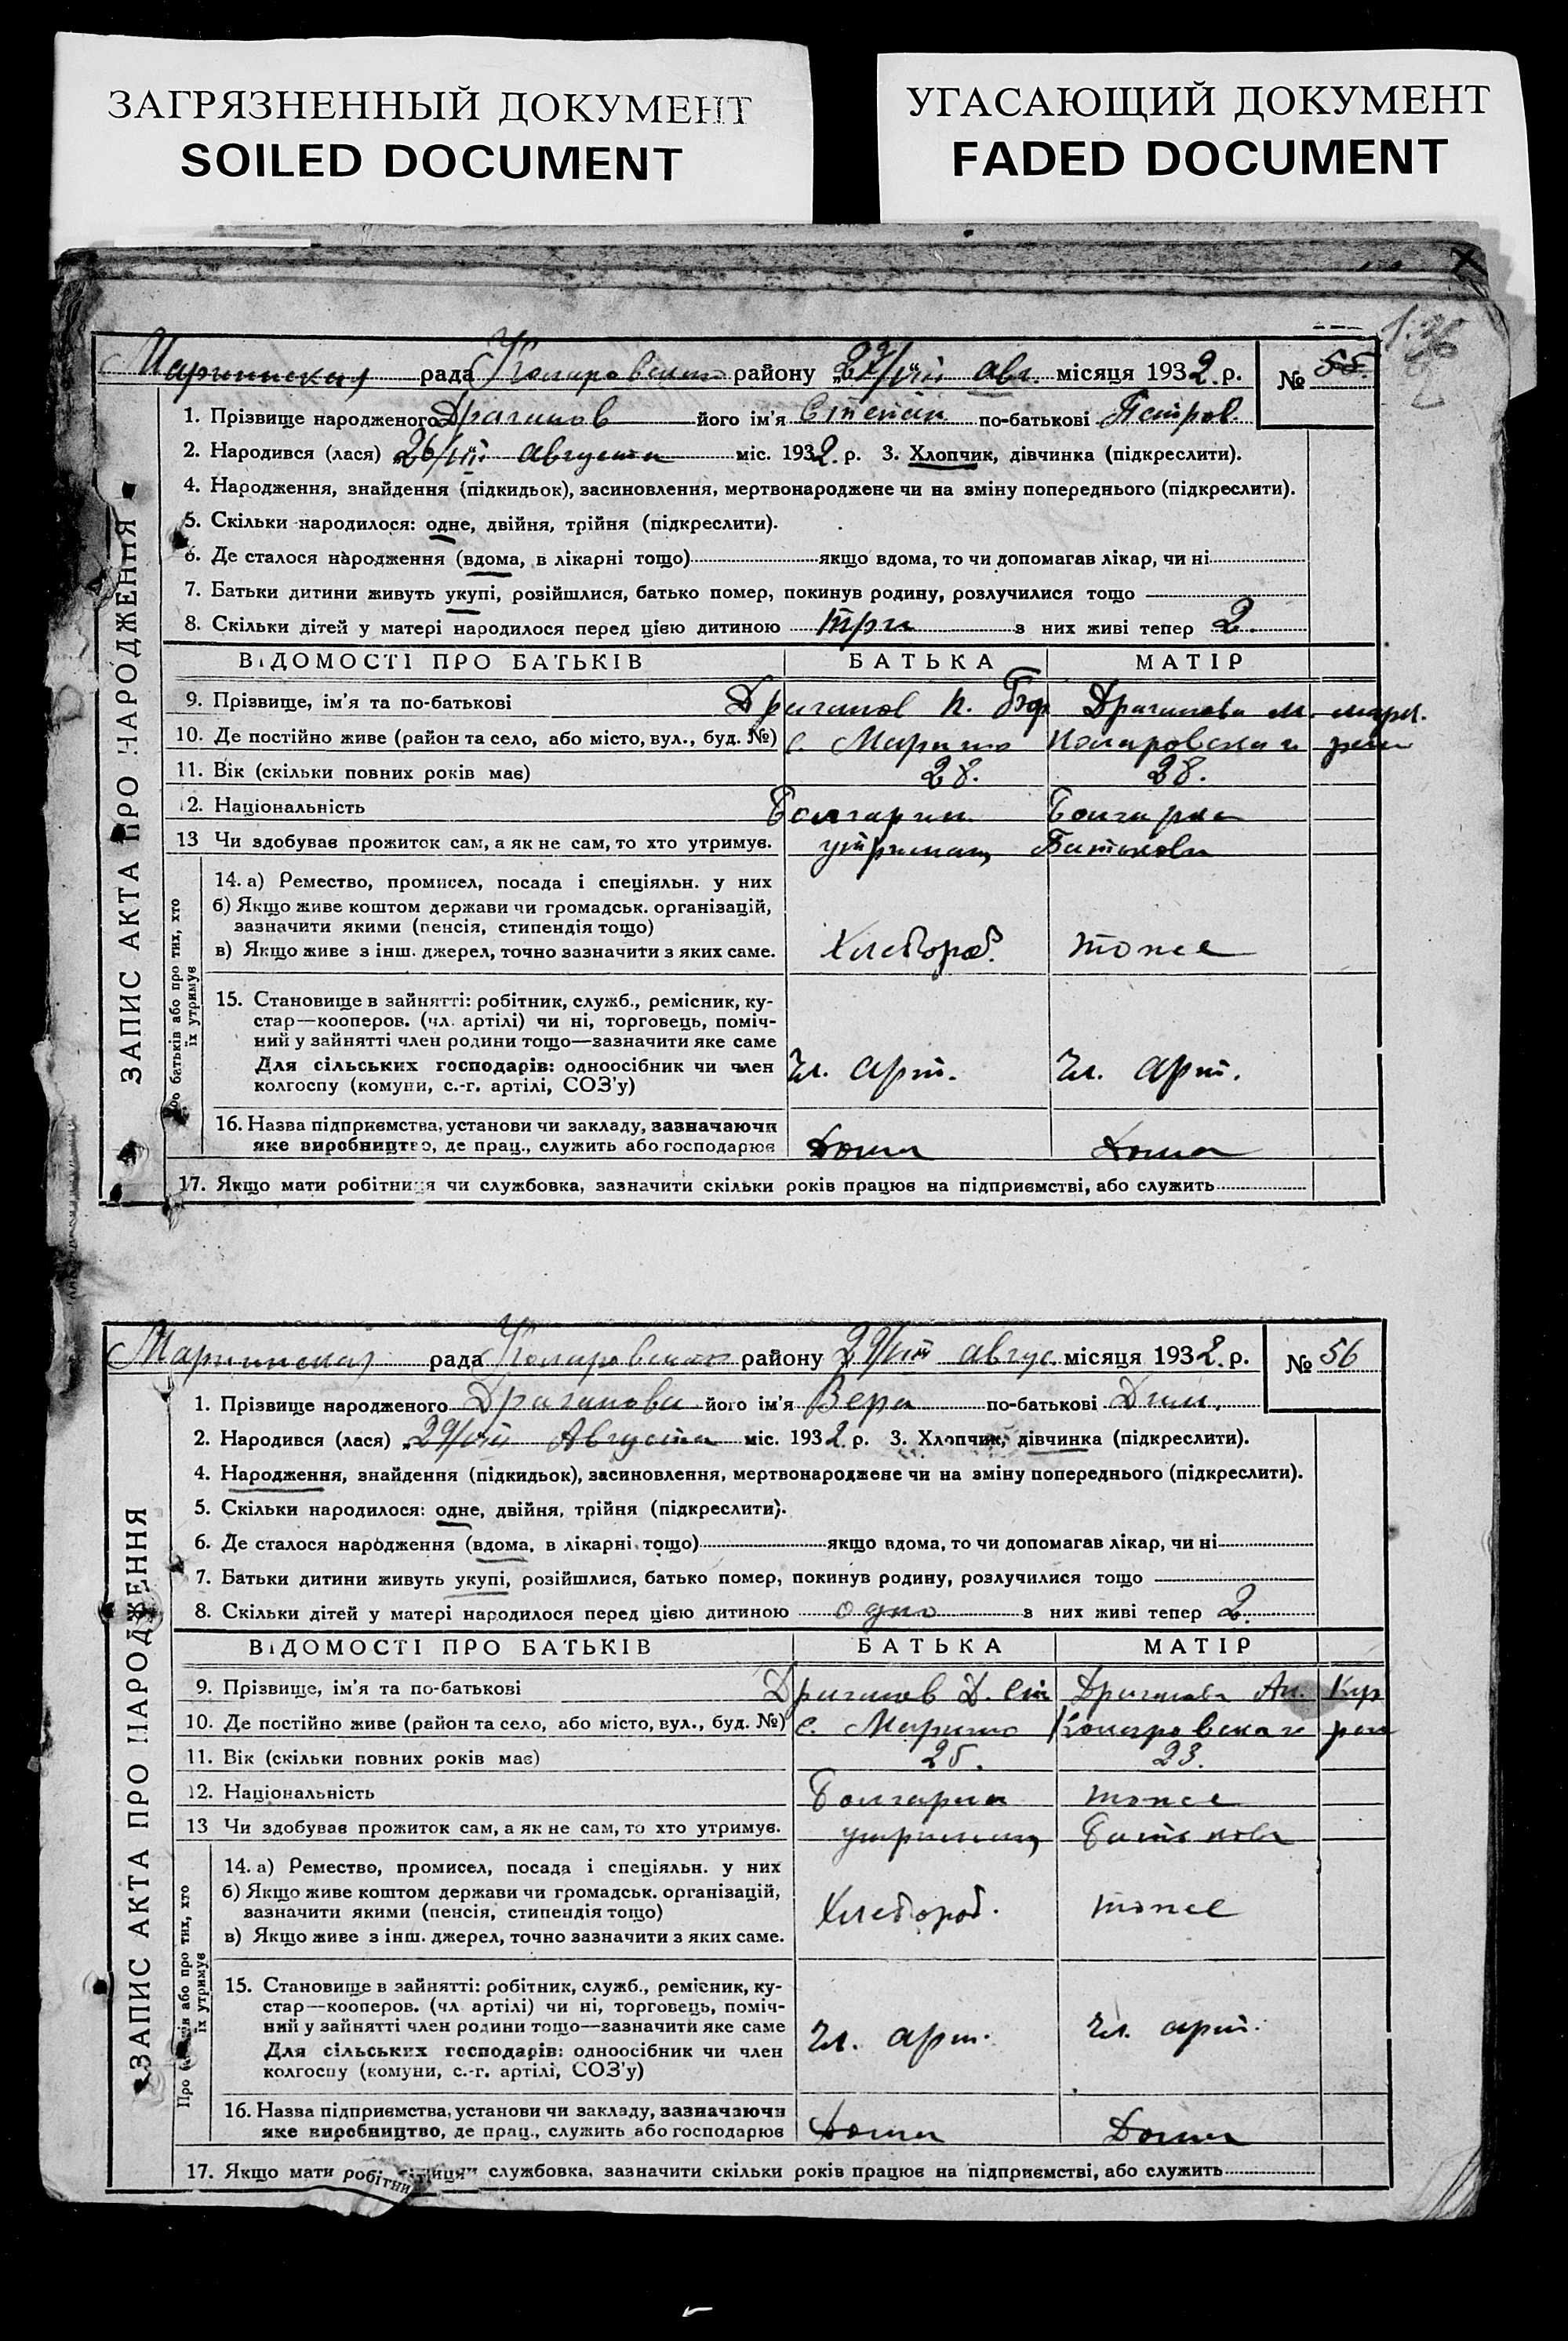 ЗАГРЯЗНЕННЫЙ ДОКУМЕНТ
SOILED DOCUMENT
УГАСАЮЩИЙ ДОКУМЕНТ
FADED DOCUMENT
ЗАПИС АКТА ПРО НАРОДЖЕННЯ
Мариинская рада Коларовского району „29/VIII авг. місяця 1932 р. № 55.
1. Прізвище народженого Драганов його ім'я Степан по-батькові Петров.
2. Народився (лася) „26/VIII августа міс. 1932. р. 3. Хлопчик, дівчинка (підкреслити).
4. Народження, знайдення (підкидьок), засиновлення, мертвонароджене чи на зміну попереднього (підкреслити).
5. Скільки народилося: одне, двійня, трійня (підкреслити).
6. Де сталося народження (вдома, в лікарні тощо) якщо вдома, то чи допомагав лікар, чи ні
7. Батьки дитини живуть укупі, розійшлися, батько помер, покинув родину, розлучилися тощо
8. Скільки дітей у матері народилося перед цією дитиною три з них живі тепер 2.
ВІДОМОСТІ ПРО БАТЬКІВ БАТЬКА МАТІР
9. Прізвище, ім'я та по-батькові Драганов П. Драганова М.
10. Де постійно живе (район та село, або місто, вул., буд. №) с. Марино Коларовского рай
11. Вік (скільки повних років має) 28. 28.
12. Національність Болгарин Болгарка
13 Чи здобував прожиток сам, а як не сам, то хто утримує. утриманц Батькови
Про батьків або про тих, хто їх утримує
14. а) Ремество, промисел, посада і спеціяльн. у них
б) Якщо живе коштом держави чи громадськ. організацій,
зазначити якими (пенсія, стипендія тощо)
в) Якщо живе з інш. джерел, точно зазначити з яких саме. Хлебороб. тоже
15. Становище в зайнятті: робітник, служб., ремісник, ку-
стар—кооперов. (чл. артілі) чи ні, торговець, поміч-
ний у зайнятті член родини тощо—зазначити яке саме
Для сільських господарів: одноосібник чи член
колгоспу (комуни, с.-г. артілі, СОЗ'у) Чл. арт. Чл. арт.
16. Назва підприємства, установи чи закладу, зазначаючи
яке виробництво, де прац., служить або господарює Дома Дома
17. Якщо мати робітниця чи службовка, зазначити скільки років працює на підприємстві, або служить
ЗАПИС АКТА ПРО НАРОДЖЕННЯ
Мариинская рада Коларовского району 29/VIII авгус. місяця 1932. р. № 56
1. Прізвище народженого Драганова його ім'я Вера по-батькові Дим.
2. Народився (лася) „29/VIII Августа міс. 1932 р. 3. Хлопчик, дівчинка (підкреслити).
4. Народження, знайдення (підкидьок), засиновлення, мертвонароджене чи на зміну попереднього (підкреслити).
5. Скільки народилося: одне, двійня, трійня (підкреслити).
6. Де сталося народження (вдома, в лікарні тощо) якщо вдома, то чи допомагав лікар, чи ні
7. Батьки дитини живуть укупі, розійшлися, батько помер, покинув родину, розлучилися тощо
8. Скільки дітей у матері народилося перед цією дитиною одно з них живі тепер 2.
ВІДОМОСТІ ПРО БАТЬКІВ БАТЬКА МАТІР
9. Прізвище, ім'я та по-батькові Драганов Д. Драганова Ан.
10. Де постійно живе (район та село, або місто, вул., буд. №) с. Марино Коларовского рай
11. Вік (скільки повних років має) 25. 23.
12. Національність Болгарин тоже
13 Чи здобував прожиток сам, а як не сам, то хто утримує. утриманц Батькови
Про батьків або про тих, хто їх утримує
14. а) Ремество, промисел, посада і спеціяльн. у них
б) Якщо живе коштом держави чи громадськ. організацій,
зазначити якими (пенсія, стипендія тощо)
в) Якщо живе з інш. джерел, точно зазначити з яких саме. Хлебороб. тоже
15. Становище в зайнятті: робітник, служб., ремісник, ку-
стар—кооперов. (чл. артілі) чи ні, торговець, поміч-
ний у зайнятті член родини тощо—зазначити яке саме
Для сільських господарів: одноосібник чи член
колгоспу (комуни, с.-г. артілі, СОЗ'у) Чл. арт. Чл. арт.
16. Назва підприємства, установи чи закладу, зазначаючи
яке виробництво, де прац., служить або господарює Дома Дома
17. Якщо мати робітниця службовка, зазначити скільки років працює на підприємстві, або служить